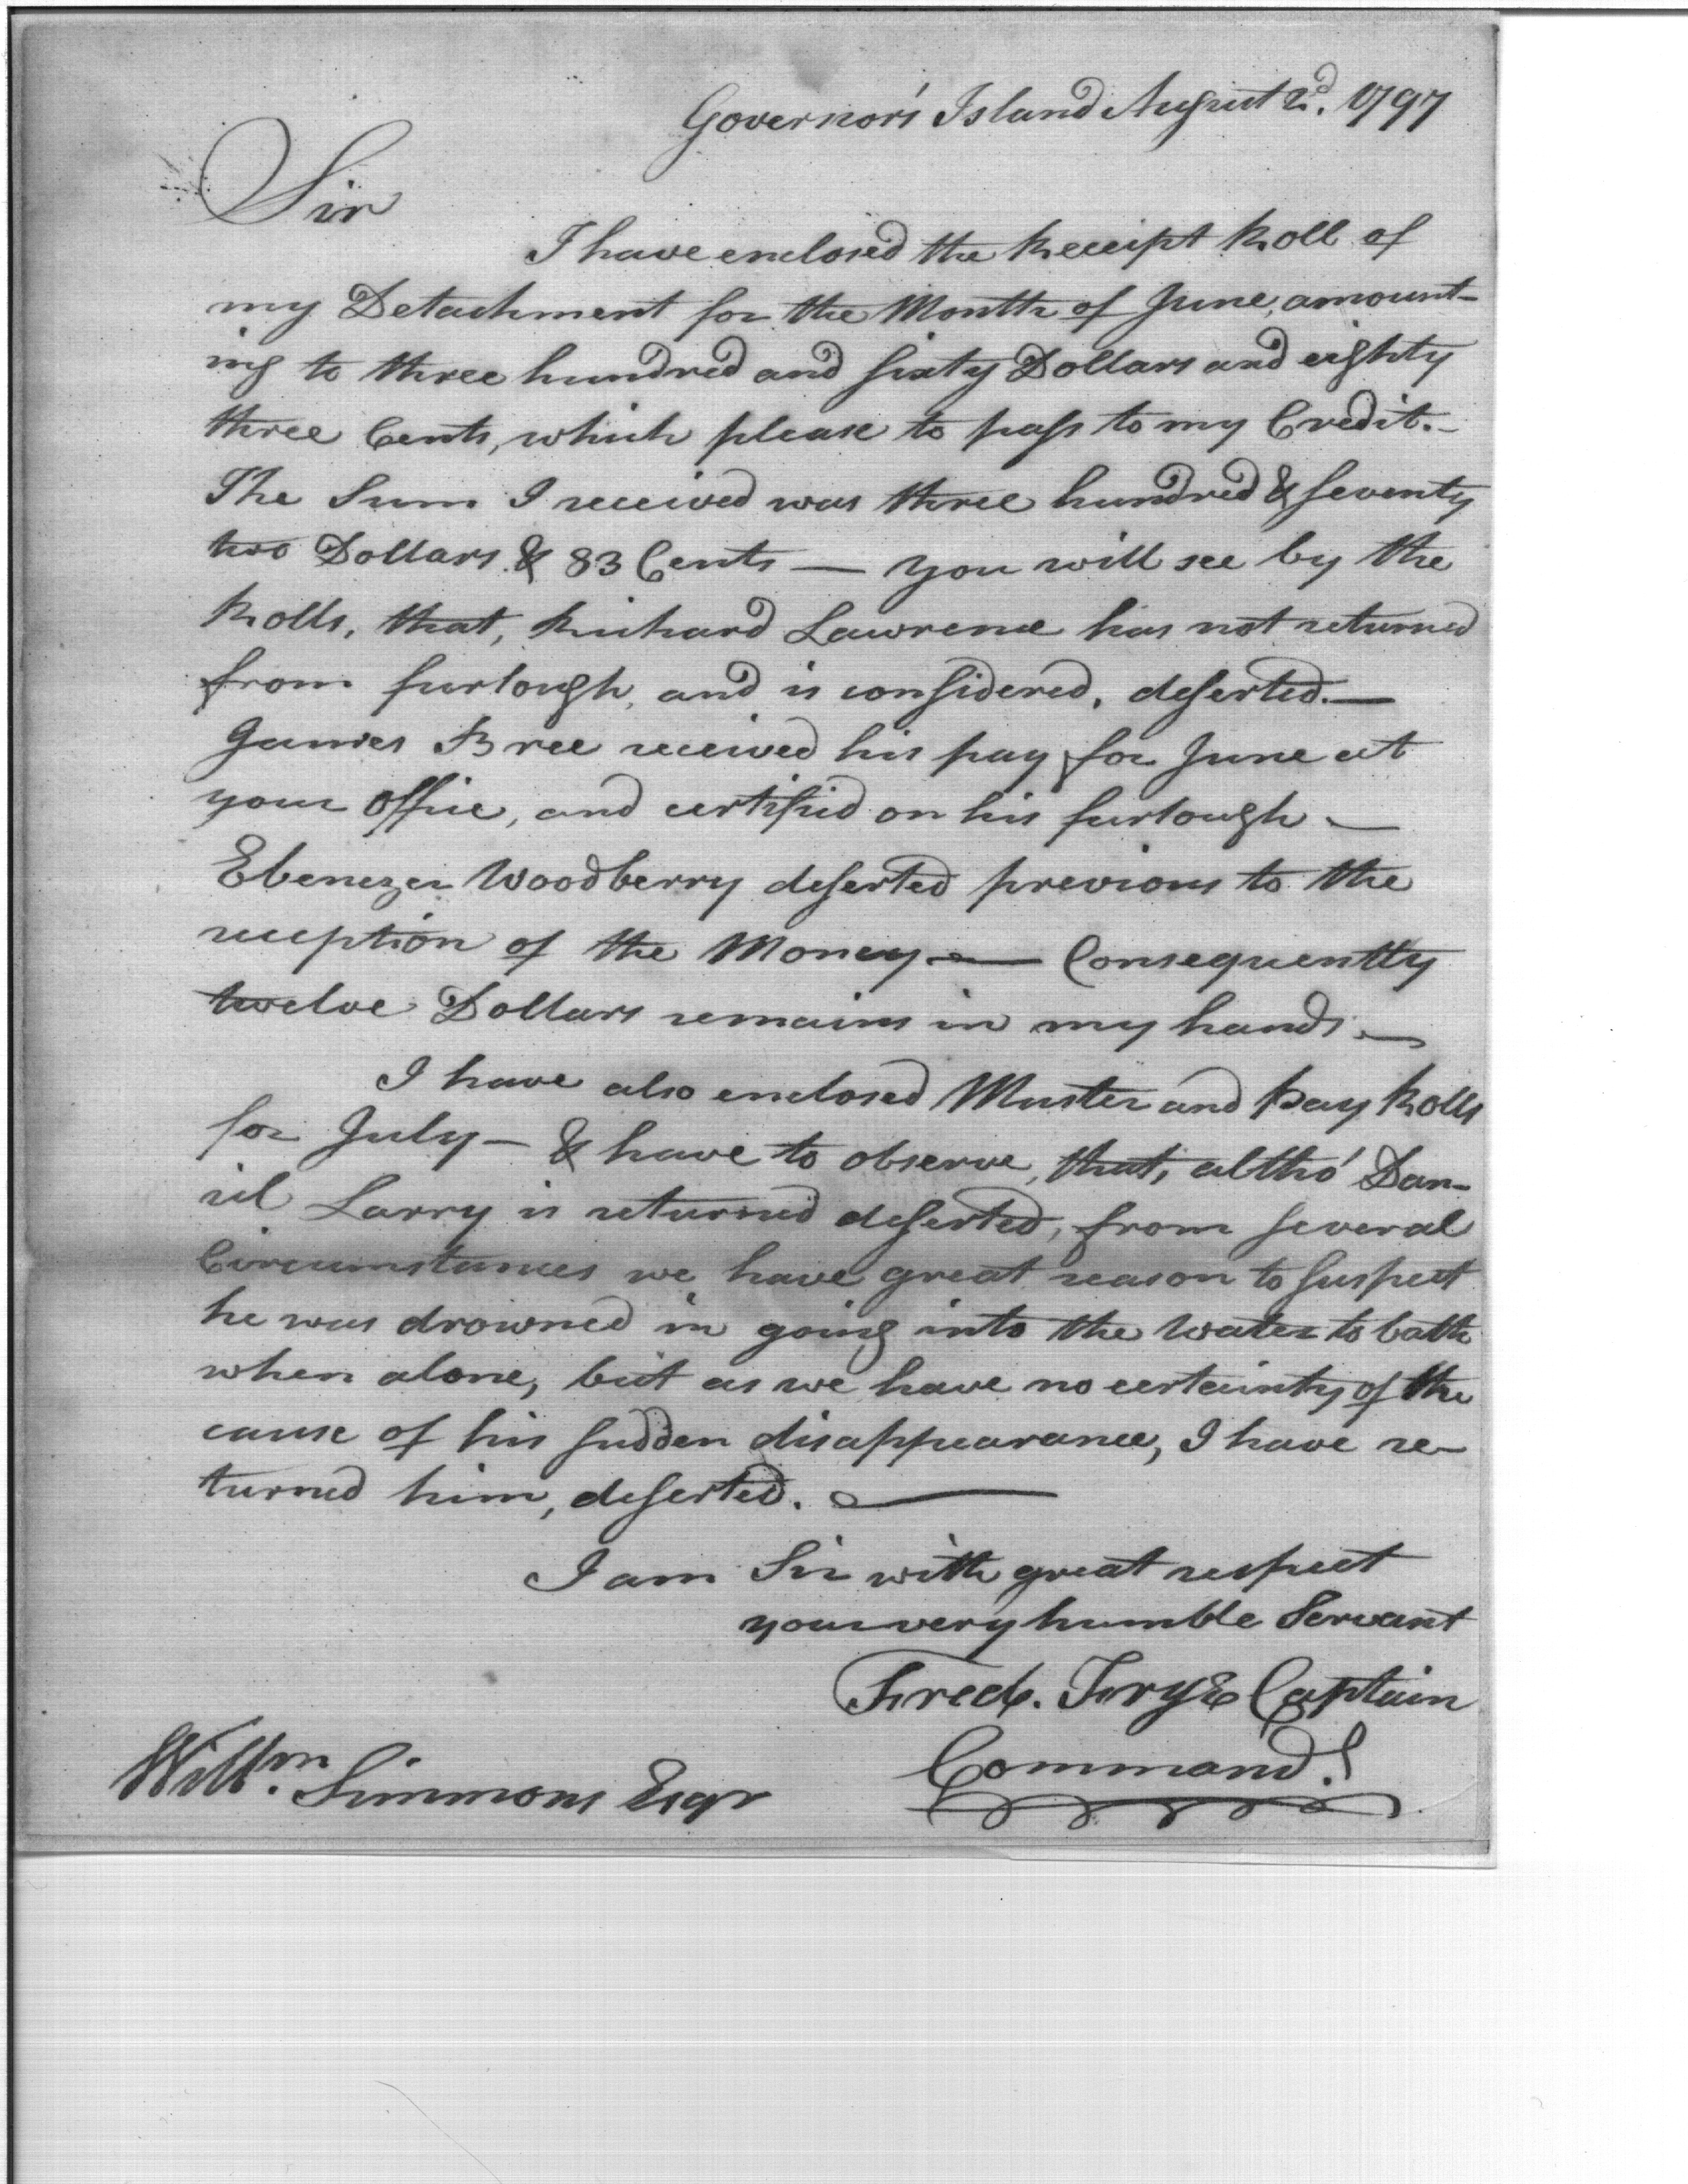 Governor's Island August 2d. 1797
Sir
I have enclosed the Receipt Roll of
my Detachment for the Month of June, amount-
ing to three hundred and sixty Dollars and eighty
three Cents, which please to pass to my Credit.-
The Sum I received was three hundred & seventy
two Dollars & 83 Cents — you will see by the
Rolls, that, Richard Lawrence has not returned
from furlough, and is considered, deserted.—
James Bree received his pay for June at
your office, and certified on his furlough —
Ebenezer Woodberry deserted previous to the
reception of the Money — Consequently
twelve Dollars remains in my hands —
I have also enclosed Muster and Pay Rolls
for July — & have to observe, that, altho' Dan-
iel Larry is returned deserted, from several
Circumstances we have great reason to suspect
he was drowned in going into the water to bathe
when alone, but as we have no certainty of the
cause of his sudden disappearance, I have re-
turned him, deserted. —
I am Sir with great respect
your very humble Servant
Fred. Frye Captain
Command.g
Willm. Simmons Esqr